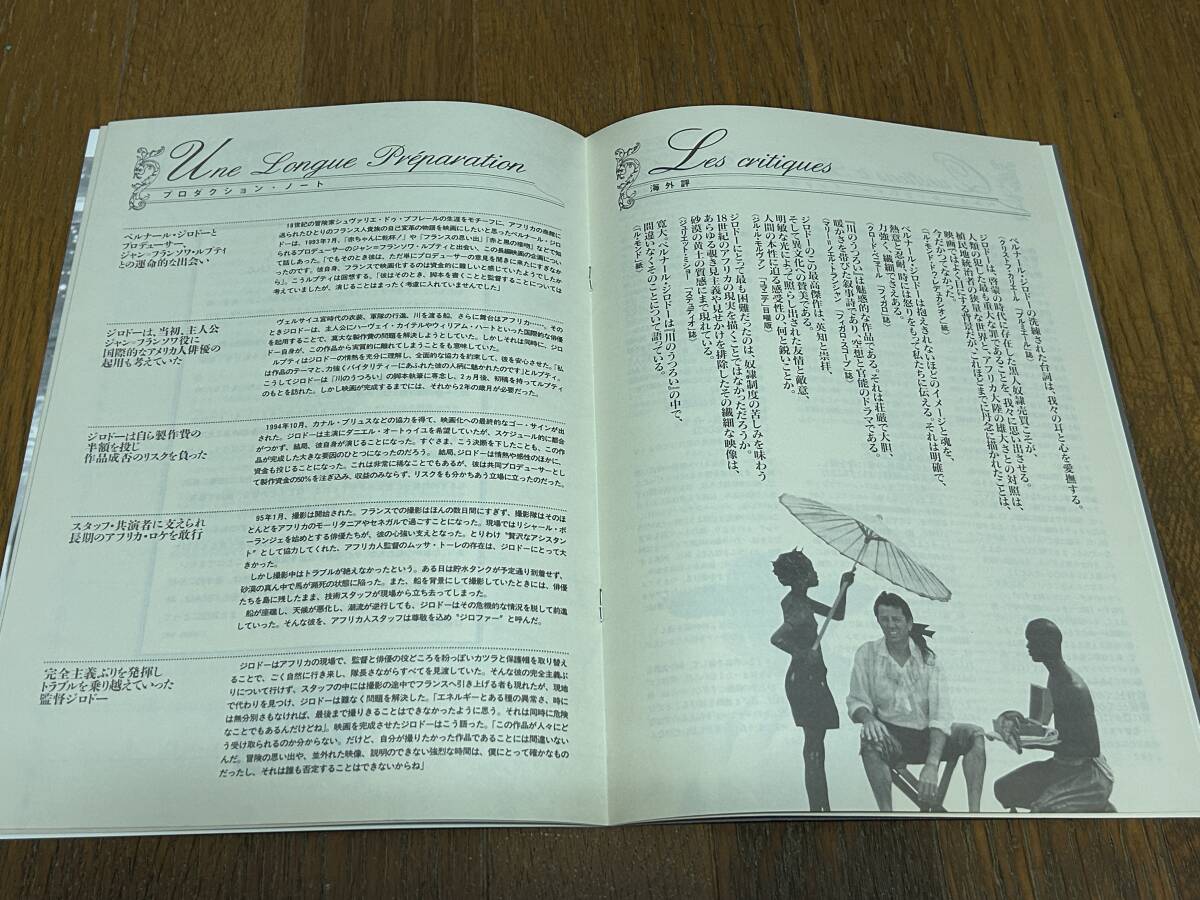 Une Longue Préparation
プロダクション・ノート
ベルナール・ジロドーと
プロデューサー、
ジャン=フランソワ・ルプティ
との運命的な出会い
18世紀の冒険家シュヴァリエ・ドゥ・ブフレールの生涯をモチーフに、アフリカの赤龍に
送られたひとりのフランス人貴族の自己変革の物語を映画にしたいと思ったベルナール・ジロ
ドーは、1993年7月、「赤ちゃんに乾杯！」や「フランスの思い出」「赤と黒の接吻」などで知
られるプロデューサーのジャン=フランソワ・ルプティと出会い、この長編映画の企画につい
て話しあった。「でもそのとき彼は、ただ単にプロデューサーの意見を聞きに来たにすぎなか
ったのです。彼自身、フランスで映画化するのは資金的に難しいと感じていたようでしたか
ら」。こうルプティは回想する。「彼はそのとき、脚本を書くことと監督することについては
考えていましたが、演じることはまったく考慮に入れていませんでした」
ジロドーは、当初、主人公
ジャン=フランソワ役に
国際的なアメリカ人俳優の
起用も考えていた
ヴェルサイユ宮時代の衣装、軍隊の行進、川を渡る船、さらに舞台はアフリカ――。その
ときジロドーは、主人公にハーヴェイ・カイテルやウィリアム・ハートといった国際的俳優
を起用することで、莫大な製作費の問題を解決しようとしていた。しかしそれは同時に、ジロ
ドー自身が、この作品から実質的に離れてしまうことをも意味していた。
ルプティはジロドーの情熱を充分に理解し、全面的な協力を約束して、彼を安心させた。「私
は作品のテーマと、力強くバイタリティーにあふれた彼の人柄に魅かれたのです」とルプティ。
こうしてジロドーは「川のうつろい」の脚本執筆に専念し、2ヵ月後、初稿を持ってルプティ
のもとを訪れた。しかし映画が完成するまでには、それから2年の歳月が必要だった。
ジロドーは自ら製作費の
半額を投じ
作品成否のリスクを負った
1994年10月、カナル・プリュスなどの協力を得て、映画化への最終的なゴー・サインが出
された。ジロドーは主演にダニエル・オートゥイユを希望していたが、スケジュール的に都合
がつかず、結局、彼自身が演じることになった。すぐさま、こう決断を下したことも、この作
品が完成した大きな要因のひとつになったのだろう。 結局、ジロドーは情熱や感性のほかに、
資金も投じることになった。これは非常に稀なことでもあるが、彼は共同プロデューサーとし
て製作資金の50%を注ぎ込み、収益のみならず、リスクをも分かちあう立場に立ったのだった。
スタッフ・共演者に支えられ
長期のアフリカ・ロケを敢行
95年1月、撮影は開始された。フランスでの撮影はほんの数日間にすぎず、撮影隊はそのほ
とんどをアフリカのモーリタニアやセネガルで過ごすことになった。現場ではリシャール・ボ
ーランジェを始めとする俳優たちが、彼の心強い支えとなった。とりわけ“贅沢なアシスタン
ト”として協力してくれた、アフリカ人監督のムッサ・トーレの存在は、ジロドーにとって大
きかった。
しかし撮影中はトラブルが絶えなかったという。ある日は貯水タンクが予定通り到着せず、
砂漠の真ん中で馬が瀕死の状態に陥った。また、船を背景にして撮影していたときには、俳優
たちを島に残したまま、技術スタッフが現場から立ち去ってしまった。
船が座礁し、天候が悪化し、潮流が逆行しても、ジロドーはその危機的な情況を脱して前進
していった。そんな彼を、アフリカ人スタッフは尊敬を込め“ジロファー”と呼んだ。
完全主義ぶりを発揮し
トラブルを乗り越えていった
監督ジロドー
ジロドーはアフリカの現場で、監督と俳優の役どころを粉っぽいカツラと保護帽を取り替え
ることで、ごく自然に行き来し、隊長さながらすべてを見渡していた。そんな彼の完全主義ぶ
りについて行けず、スタッフの中には撮影の途中でフランスへ引き上げる者も現れたが、現地
で代わりを見つけ、ジロドーは難なく問題を解決した。「エネルギーとある種の異常さ、時に
は無分別さもなければ、最後まで撮りきることはできなかったように思う。それは同時に危険
なことでもあるんだけどね」。映画を完成させたジロドーはこう語った。「この作品が人々にど
う受け取られるのか分からない。だけど、自分が撮りたかった作品であることには間違いない
んだ。冒険の思い出や、並外れた映像、説明のできない強烈な時間は、僕にとって確かなもの
だったし、それは誰も否定することはできないからね」
Les critiques
海外評
ベルナール・ジロドーの洗練された台詞は、我々の耳と心を愛撫する。
（クリストフ・カリエール 「プルミエール」誌）
ジロドーは、啓蒙の時代に存在した黒人奴隷売買こそが、
人類の犯した最も重大な罪であることを、我々に思い出させる。
植民地統治者の狭量な世界と、アフリカ大陸の雄大さとの対照は、
映画ではよく目にする背景だが、これほどまでに丹念に描かれたことは、
今だかつてなかった。
（「ル・モンド・ドゥ・レデュカシオン」誌）
ベルナール・ジロドーは抱えきれないほどのイメージと魂を、
熱意と忍耐、時には怒りをもって私たちに伝える。それは明確で、
力強く、繊細でさえある。
（クロード・ベニエール 「フィガロ」誌）
「川のうつろい」は魅惑的な作品である。それは荘厳で大胆、
暖かさを帯びた叙事詩であり、空想と官能のドラマである。
（マリー=ノエル・トランシャン 「フィガロスコープ」誌）
ジロドーのこの最高傑作は、英知と崇拝、
そして異文化への賛美である。
明敏な光によって照らし出された友情と敵意、
人間の本性に迫る感受性の、何と鋭いことか。
（ジル・ル・モルヴァン 「ユマニテ」日曜版）
ジロドーにとって最も困難だったのは、奴隷制度の苦しみを味わう
18世紀のアフリカの現実を描くことではなかっただろうか。
あらゆる覗き見主義や見せかけを排除したその繊細な映像は、
砂漠の黄土の質感にまで現れている。
（ジュリエット・ミショー 「ステュディオ」誌）
寛大なベルナール・ジロドーは『川のうつろい』の中で、
間違いなくそのことについて語っている。
（「ル・モンド」紙）